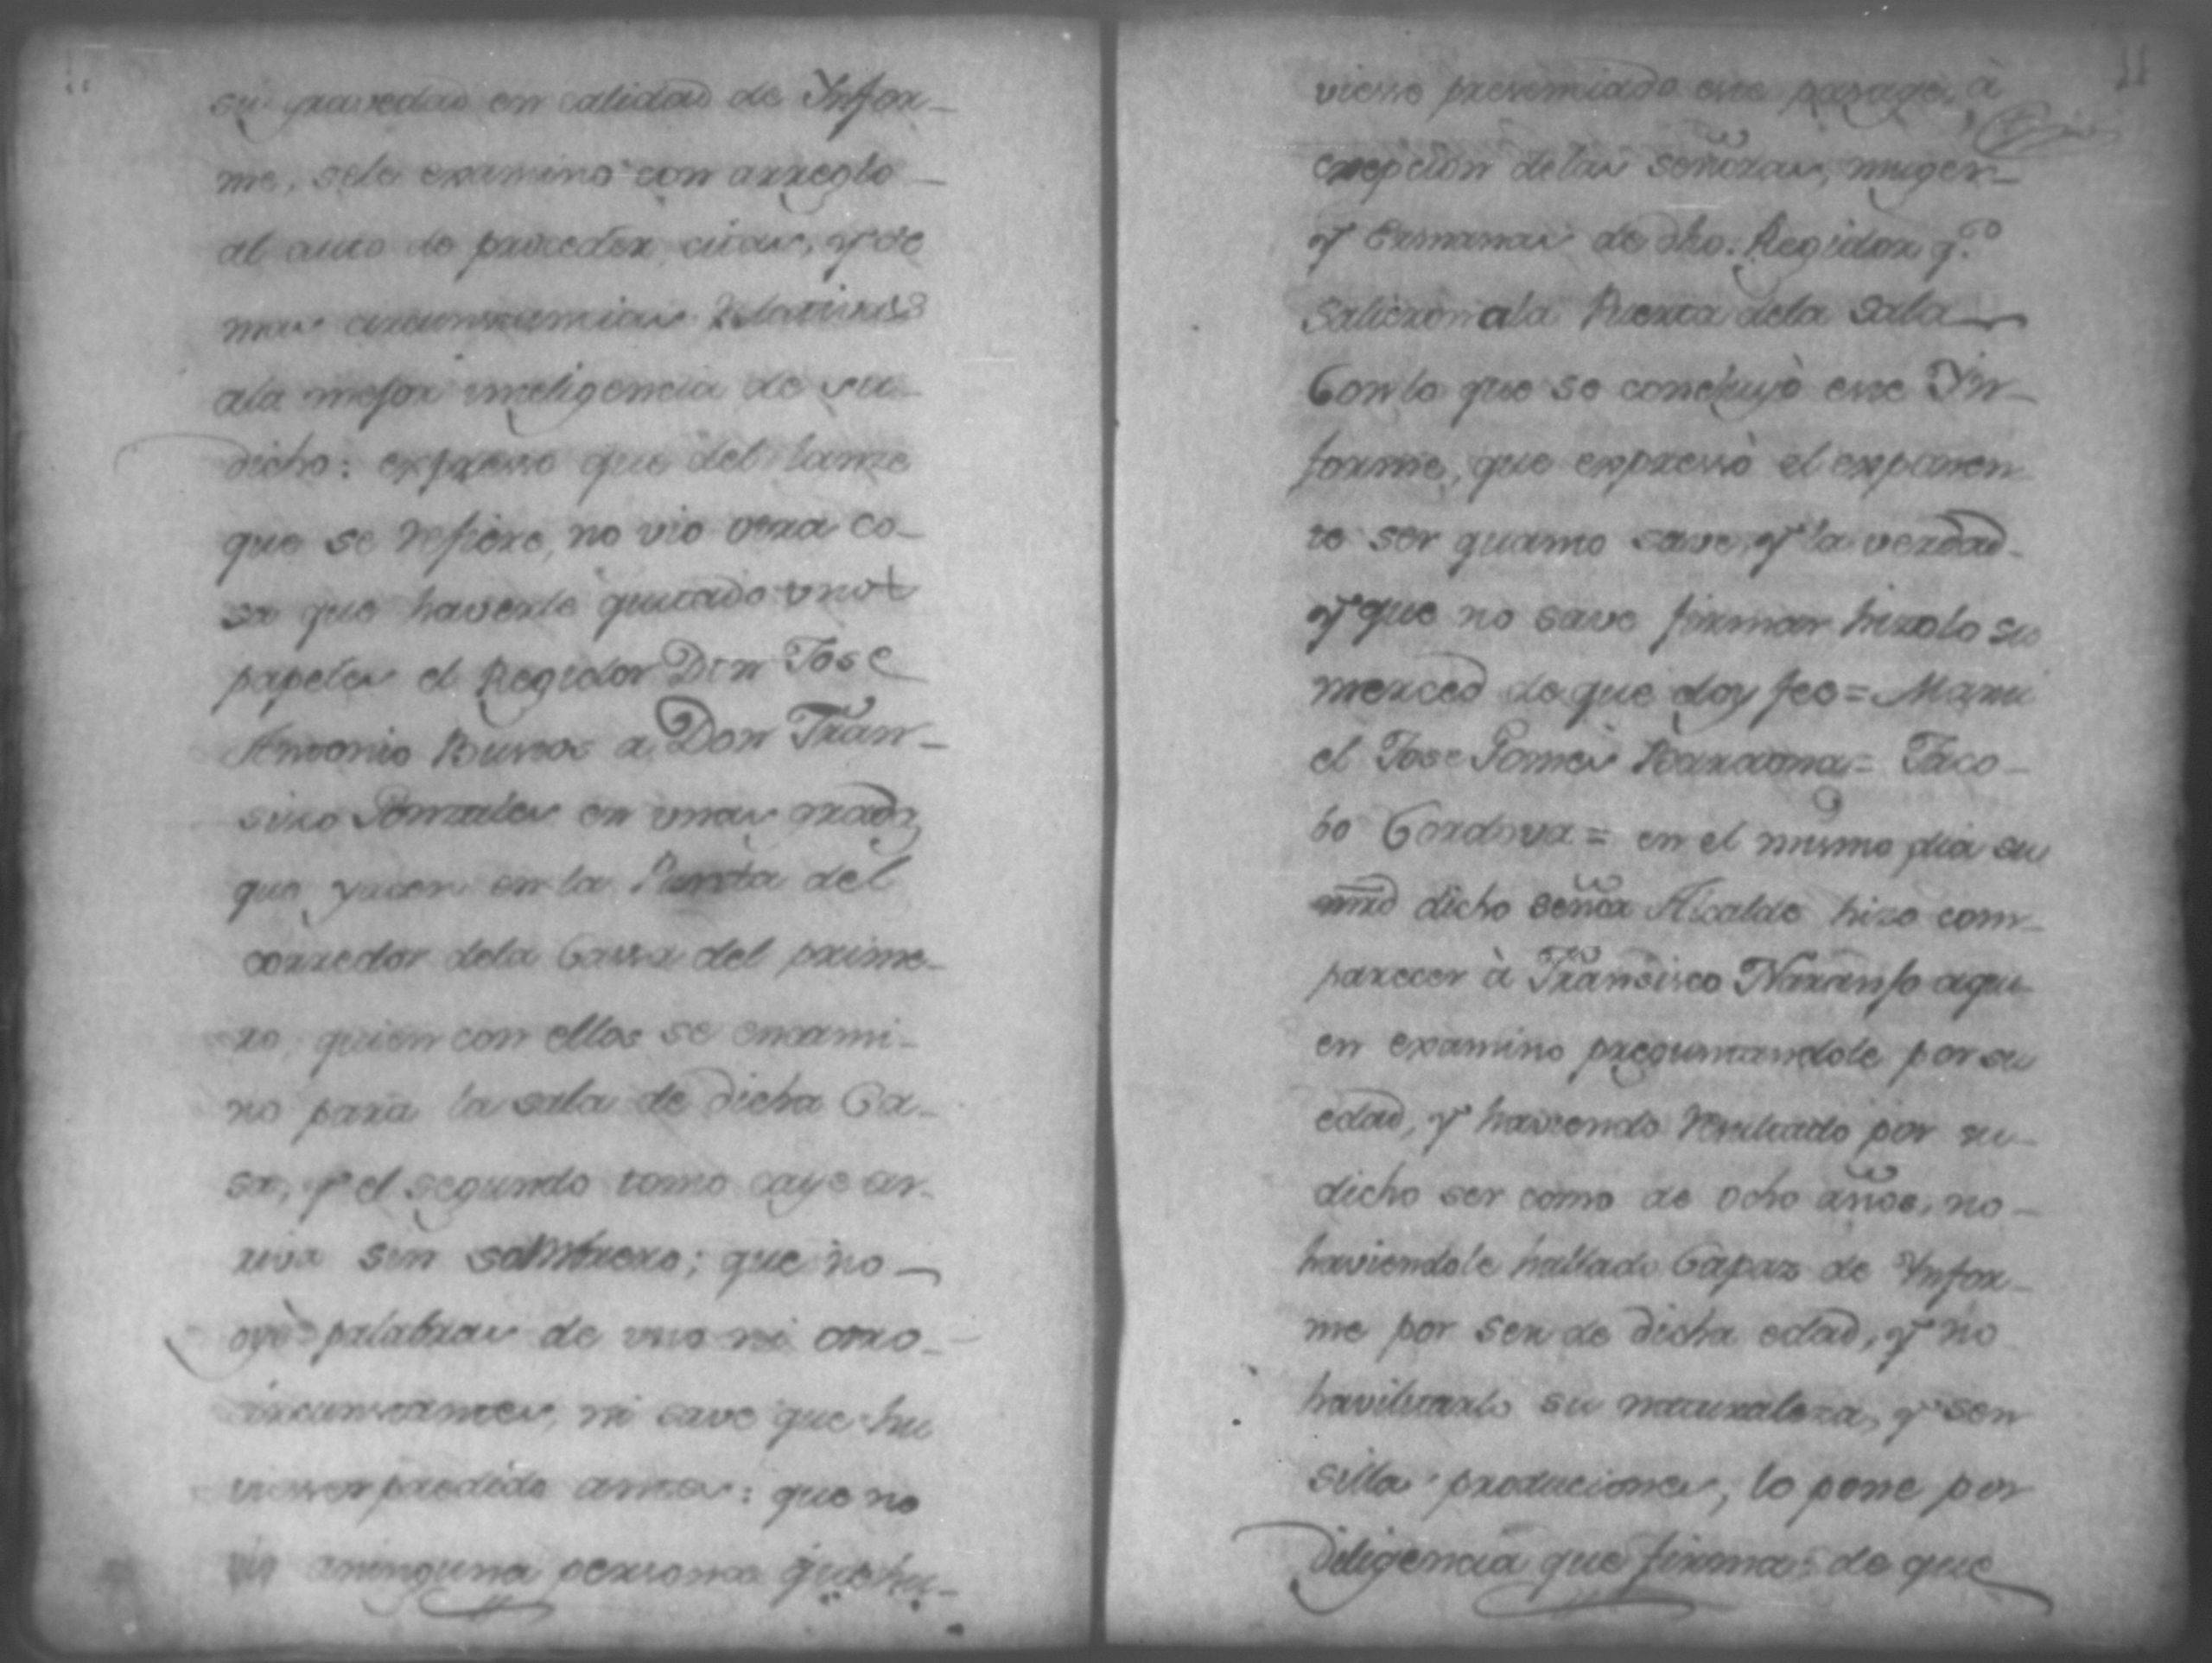 su gravedad en calidad de Ynfor-
me, sele examinó con arreglo
al auto de proceder, citas, y de
mas circunstancias relativas
ala mejor inteligencia de su
dicho: expreso que del lance
que se refiere, no vio otra co-
sa que haverle quitado unos
papeles el Regidor Don Jose
Antonio Burros a Don Fran-
sisco Gonzales en unas gradas
que yacen en la Puerta del
corredor dela Cassa del prime-
ro, quien con ellos se encami-
nó para la sala de dicha Ca-
sa, y el segundo tomo caye ar-
riva sin sombrero; que no
oyó palabras de uno ni otro
circunstantes, ni save que hu
viessen precedido antes: que no
vio aninguna persona que hu-
viesse presenciado este pasage, à
exepcion delas señoras, muger
y Ermanas de dho. Regidor q.e
salieron ala Puerta dela Sala
Con lo que se concluyò este Yn-
forme, que expressò el exponen
te ser quanto save, y la verdad
y que no save firmar hizolo su
merced de que doy fee = Manu
el Jose Gomes Baraona = Jaco-
bo Cordova = en el mismo dia su
mrd dicho señor Alcalde hizo com-
parecer à Fransisco Naranjo aqui
en examinó preguntandole por su
edad, y haviendo resultado por su
dicho ser como de ocho años, no
haviendole hallado Capaz de Ynfor-
me por ser de dicha edad, y no
havilitarlo su naturaleza, y sen
silla producciones, lo pone por
Diligencia que firma: de que